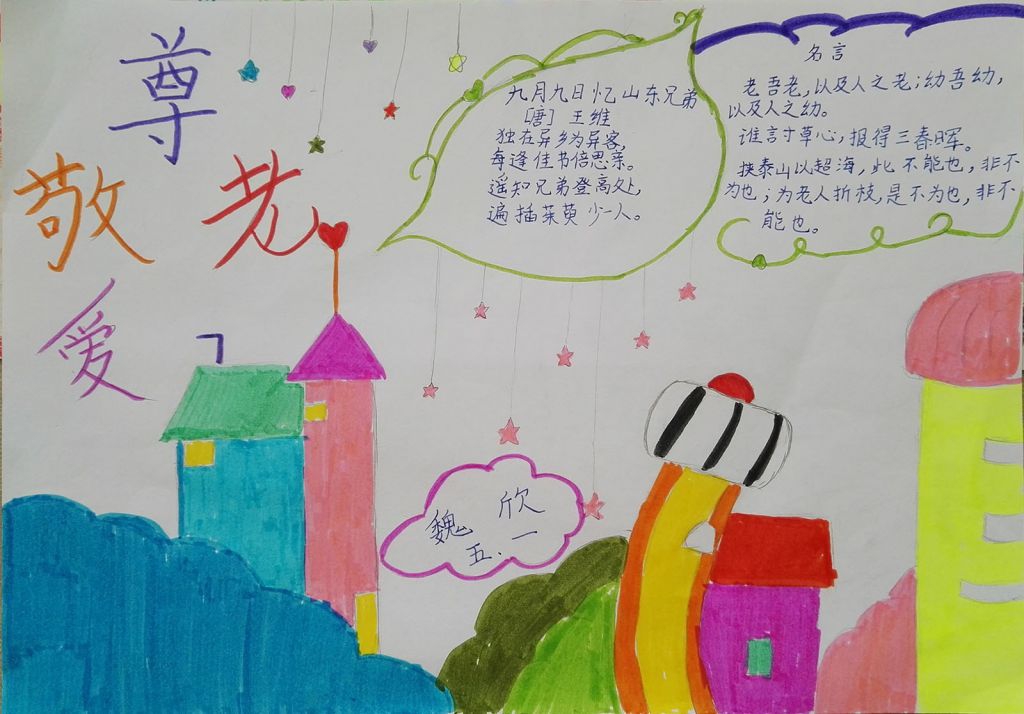 尊
敬 老
爱
九月九日忆山东兄弟
[唐] 王维
独在异乡为异客,
每逢佳书倍思亲。
遥知兄弟登高处,
遍插茱萸少一人。
名言
老吾老,以及人之老;幼吾幼,
以及人之幼。
谁言寸草心,报得三春晖。
挟泰山以超海,此不能也,非不
为也;为老人折枝,是不为也,非不
能也。
魏 欣
五.一